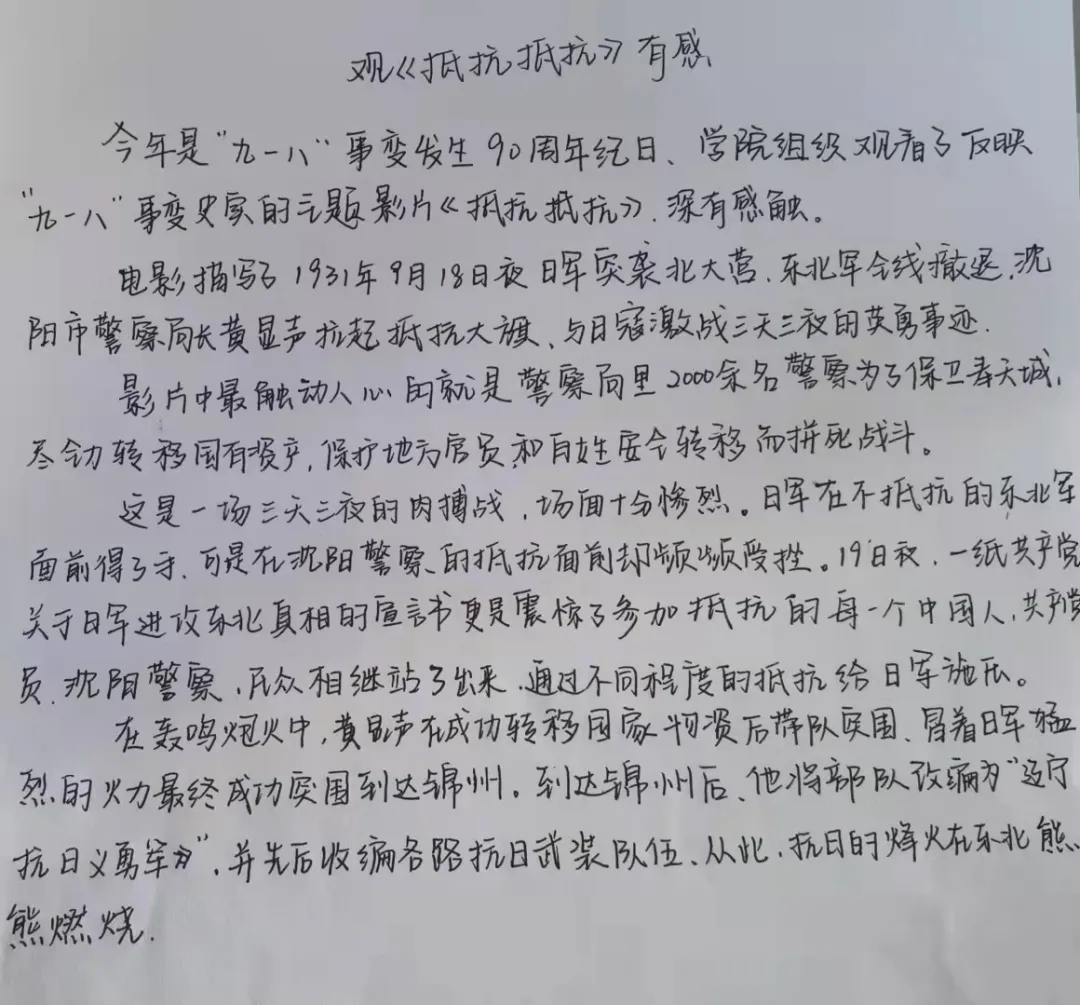 观《抵抗抵抗》有感
今年是"九一八"事变发生90周年纪日、学院组织观看了反映
"九一八"事变史实的主题影片《抵抗抵抗》.深有感触。
电影描写了1931年9月18日夜日军突袭北大营.东北军全线撤退,沈
阳市警察局长黄显声抗起抵抗大旗、与日寇激战三天三夜的英勇事迹.
影片中最触动人心的就是警察局里2000余名警察为了保卫奉天城,
尽全力转移国有资产,保护地方官员和百姓安全转移而拼死战斗。
这是一场三天三夜的肉搏战,场面十分惨烈。日军在不抵抗的东北军
面前得了手.可是在沈阳警察的抵抗面前却频频受挫。19日夜.一纸共产党
关于日军进攻东北真相的宣言书更是震惊了参加抵抗的每一个中国人,共产党
员.沈阳警察.民众相继站了出来.通过不同程度的抵抗给日军施压。
在轰鸣炮火中,黄显声在成功转移国家物资后带队突围、冒着日军猛
烈的火力最终成功突围到达锦州。到达锦州后、他将部队改编为"辽宁
抗日义勇军",并先后收编各路抗日武装队伍、从此,抗日的烽火在东北熊
熊燃烧.